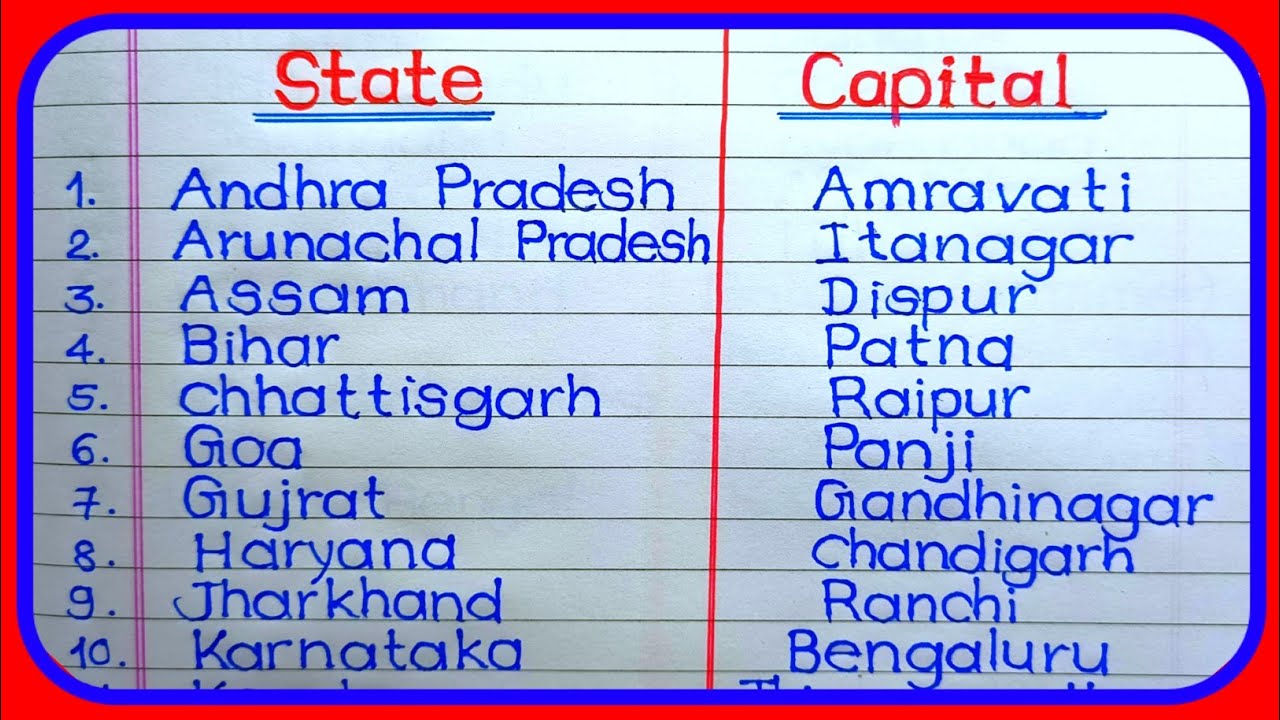 State Capital
1. Andhra Pradesh Amravati
2. Arunachal Pradesh Itanagar
3. Assam Dispur
4. Bihar Patna
5. Chhattisgarh Raipur
6. Goa Panji
7. Gujrat Gandhinagar
8. Haryana Chandigarh
9. Jharkhand Ranchi
10. Karnataka Bengaluru